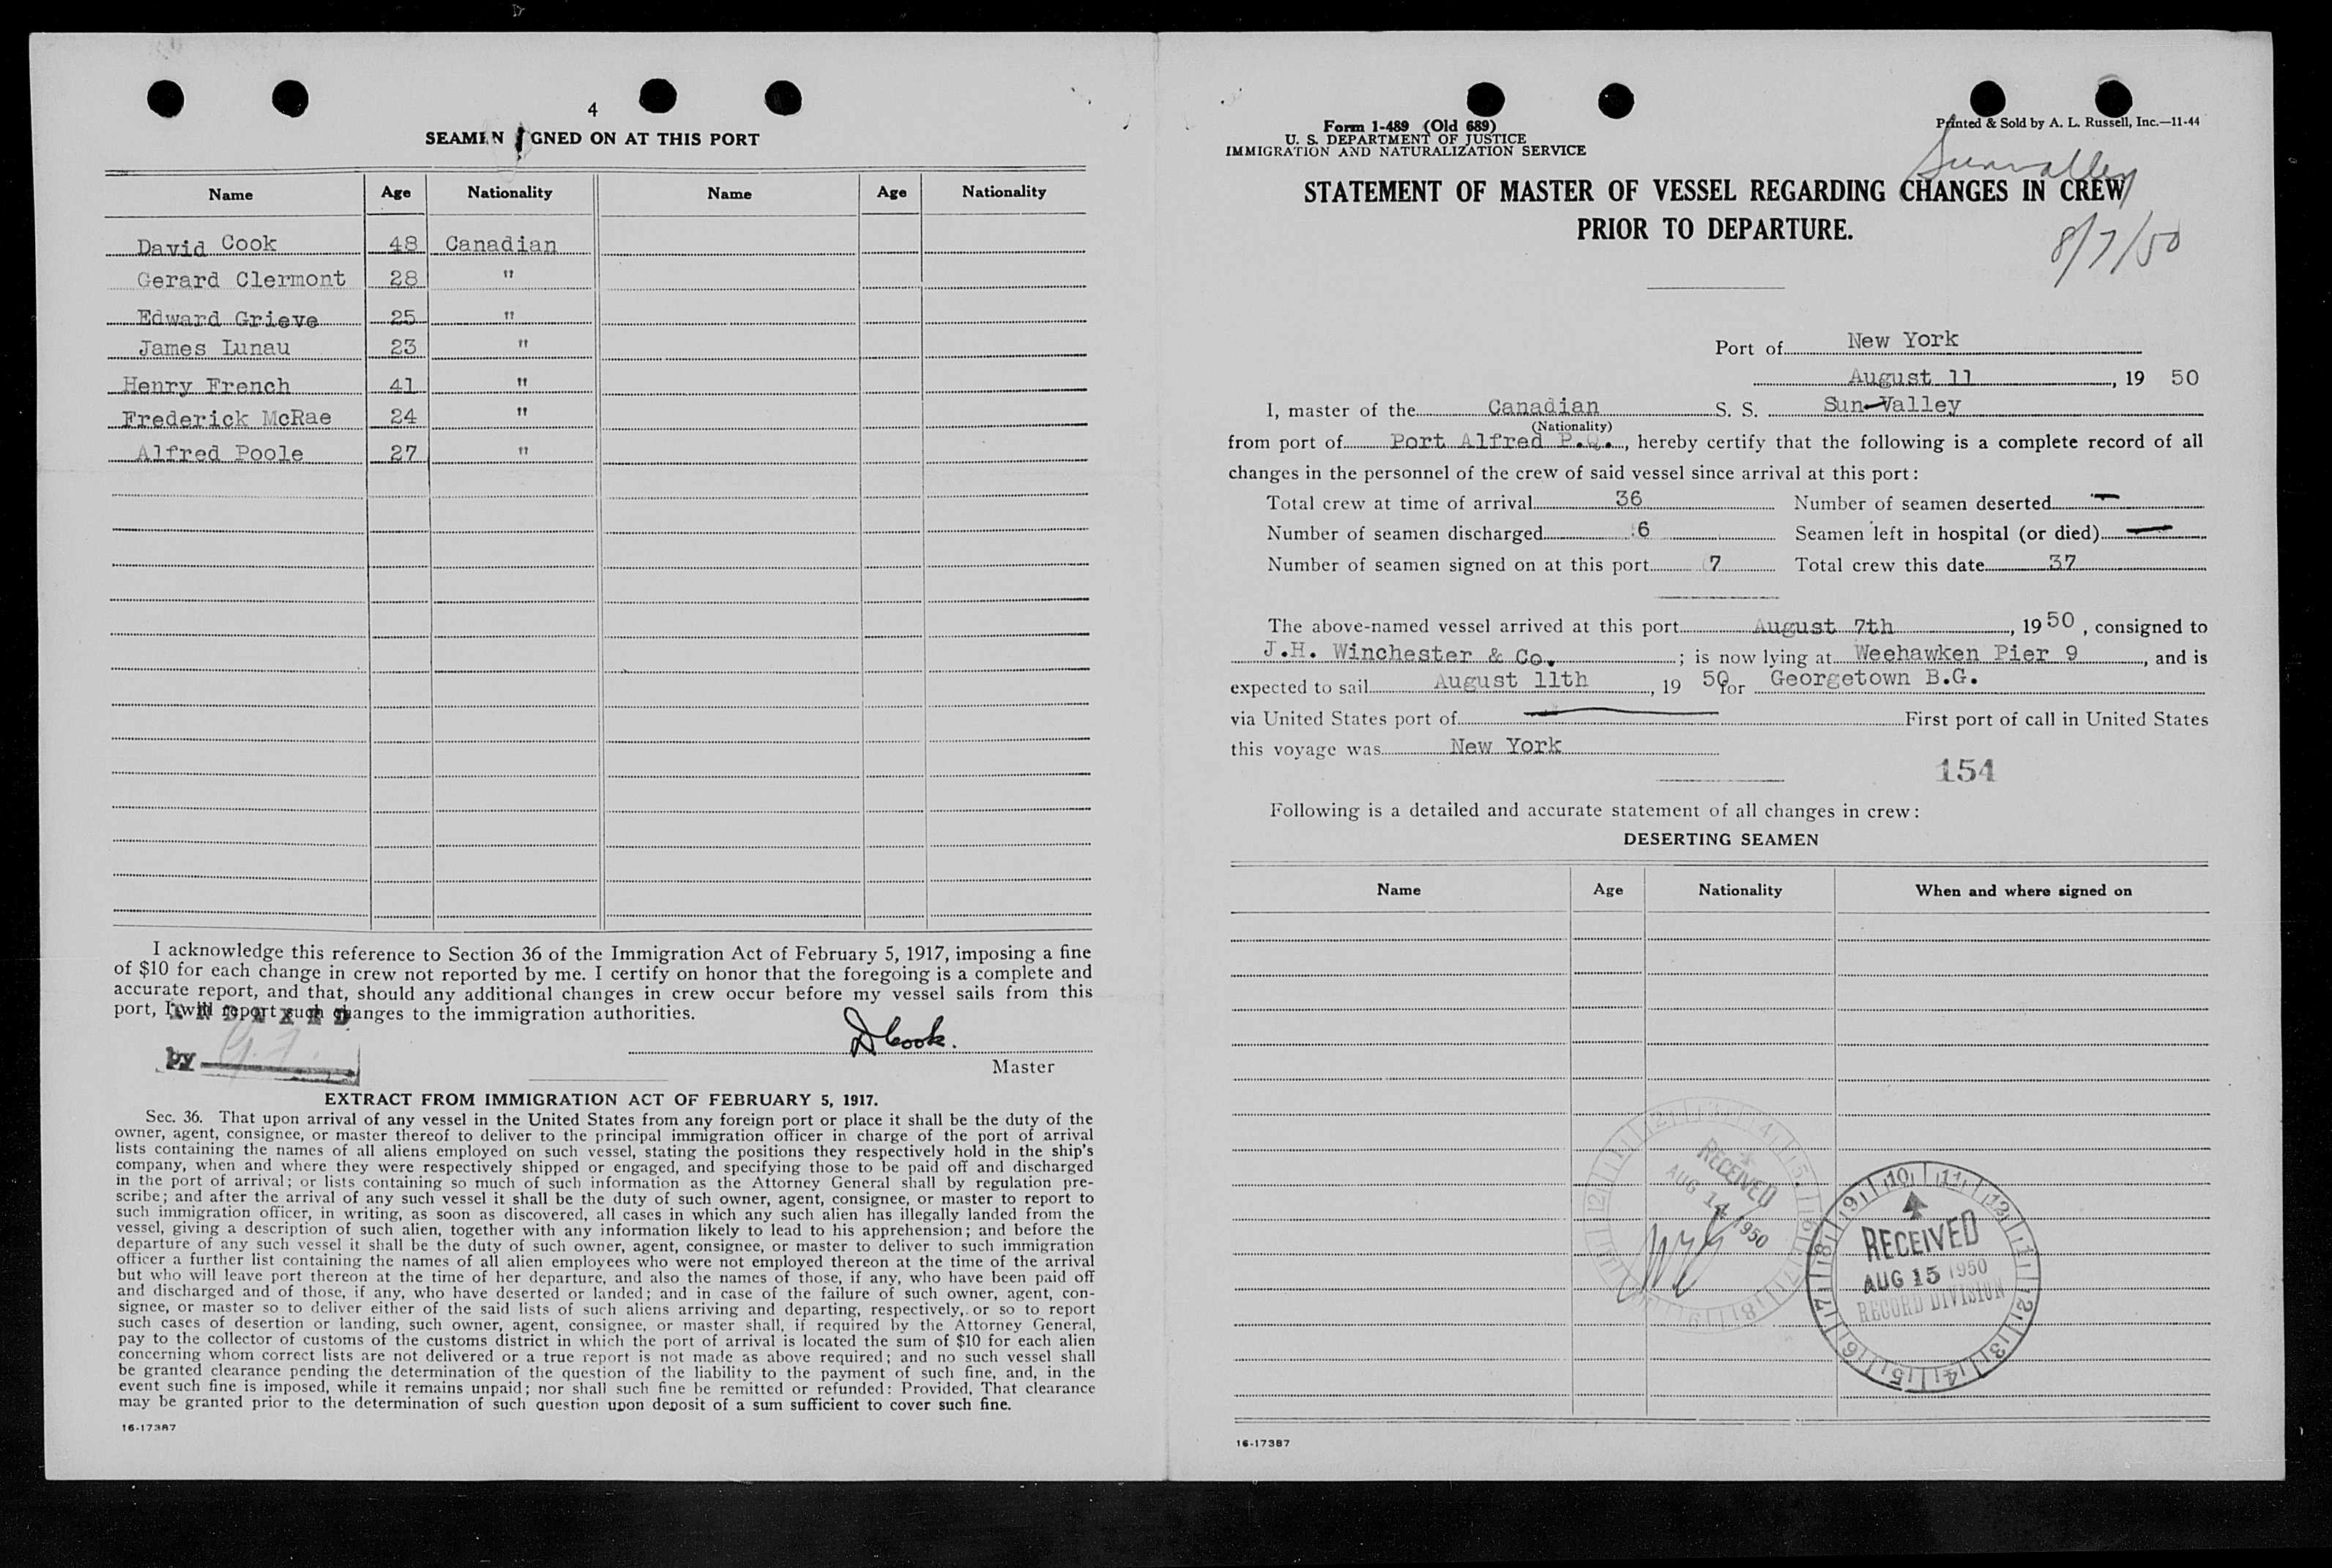 4
SEAMEN SIGNED ON AT THIS PORT
Name Age Nationality Name Age Nationality
David Cook 48 Canadian
Gerard Clermont 28 "
Edward Grieve 25 "
James Lunau 23 "
Henry French 41 "
Frederick McRae 24 "
Alfred Poole 27 "
I acknowledge this reference to Section 36 of the Immigration Act of February 5, 1917, imposing a fine
of $10 for each change in crew not reported by me. I certify on honor that the foregoing is a complete and
accurate report, and that, should any additional changes in crew occur before my vessel sails from this
port, I will report such changes to the immigration authorities.
INDEXED
by
D Cook.
Master
EXTRACT FROM IMMIGRATION ACT OF FEBRUARY 5, 1917.
Sec. 36. That upon arrival of any vessel in the United States from any foreign port or place it shall be the duty of the
owner, agent, consignee, or master thereof to deliver to the principal immigration officer in charge of the port of arrival
lists containing the names of all aliens employed on such vessel, stating the positions they respectively hold in the ship's
company, when and where they were respectively shipped or engaged, and specifying those to be paid off and discharged
in the port of arrival; or lists containing so much of such information as the Attorney General shall by regulation pre-
scribe; and after the arrival of any such vessel it shall be the duty of such owner, agent, consignee, or master to report to
such immigration officer, in writing, as soon as discovered, all cases in which any such alien has illegally landed from the
vessel, giving a description of such alien, together with any information likely to lead to his apprehension; and before the
departure of any such vessel it shall be the duty of such owner, agent, consignee, or master to deliver to such immigration
officer a further list containing the names of all alien employees who were not employed thereon at the time of the arrival
but who will leave port thereon at the time of her departure, and also the names of those, if any, who have been paid off
and discharged and of those, if any, who have deserted or landed; and in case of the failure of such owner, agent, con-
signee, or master so to deliver either of the said lists of such aliens arriving and departing, respectively, or so to report
such cases of desertion or landing, such owner, agent, consignee, or master shall, if required by the Attorney General,
pay to the collector of customs of the customs district in which the port of arrival is located the sum of $10 for each alien
concerning whom correct lists are not delivered or a true report is not made as above required; and no such vessel shall
be granted clearance pending the determination of the question of the liability to the payment of such fine, and, in the
event such fine is imposed, while it remains unpaid; nor shall such fine be remitted or refunded: Provided, That clearance
may be granted prior to the determination of such question upon deposit of a sum sufficient to cover such fine.
16-17387
Form 1-489 (Old 689)
U. S. DEPARTMENT OF JUSTICE
IMMIGRATION AND NATURALIZATION SERVICE
Printed & Sold by A. L. Russell, Inc.—11-44
Sunvalley
STATEMENT OF MASTER OF VESSEL REGARDING CHANGES IN CREW
PRIOR TO DEPARTURE.
8/7/50
Port of New York
August 11, 19 50
I, master of the Canadian S. S. Sun Valley
(Nationality)
from port of Port Alfred P.Q., hereby certify that the following is a complete record of all
changes in the personnel of the crew of said vessel since arrival at this port:
Total crew at time of arrival 36 Number of seamen deserted —
Number of seamen discharged 6 Seamen left in hospital (or died) —
Number of seamen signed on at this port 7 Total crew this date 37
The above-named vessel arrived at this port August 7th, 1950, consigned to
J.H. Winchester & Co.; is now lying at Weehawken Pier 9, and is
expected to sail August 11th, 19 50 for Georgetown B.G.
via United States port of — First port of call in United States
this voyage was New York
154
Following is a detailed and accurate statement of all changes in crew:
DESERTING SEAMEN
Name Age Nationality When and where signed on
RECEIVED
AUG 14 1950
RECEIVED
AUG 15 1950
RECORD DIVISION
16-17387